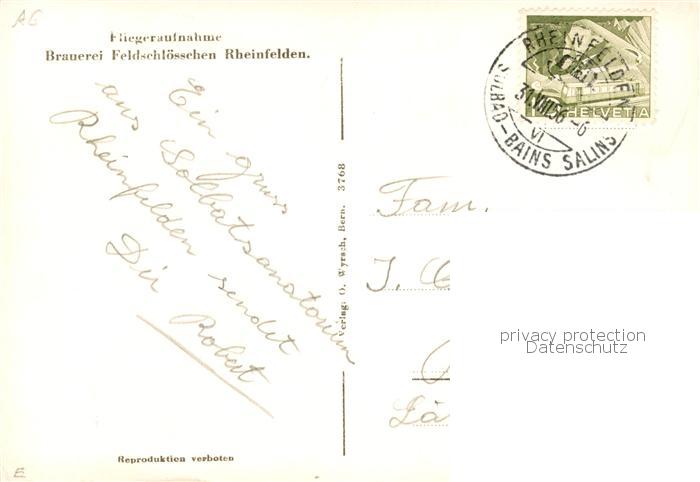 AG
Fliegeraufnahme
Brauerei Feldschlösschen Rheinfelden.
Ein gruss
aus Solbatsanatorium
Rheinfelden sendet
Dir Robert
Verlag: O. Wyrsch, Bern. 3768
RHEINFELDEN
31.VIII.56-6
VI
SOLBAD-BAINS SALINS
10 HELVETIA
Fam.
J.
privacy protection
Datenschutz
Reproduktion verboten
E